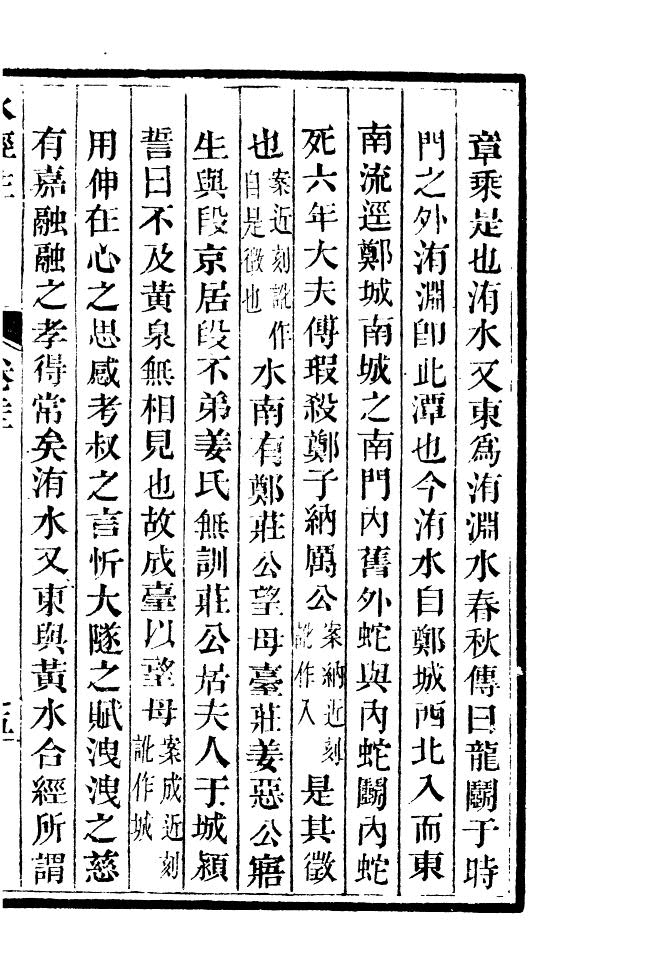 章乘是也洧水又東爲洧淵水春秋傳曰龍鬭于時
門之外洧淵卽此潭也今洧水自鄭城西北入而東
南流逕鄭城南城之南門內舊外蛇與內蛇鬭內蛇
死六年大夫傅瑕殺鄭子納厲公案納近刻訛作入是其徵
也案近刻訛作自是徵也水南有鄭莊公望母臺莊姜惡公寤
生與段京居段不弟姜氏無訓莊公居夫人于城潁
誓曰不及黃泉無相見也故成臺以望母案成近刻訛作城
用伸在心之思感考叔之言忻大隧之賦洩洩之慈
有嘉融融之孝得常矣洧水又東與黃水合經所謂